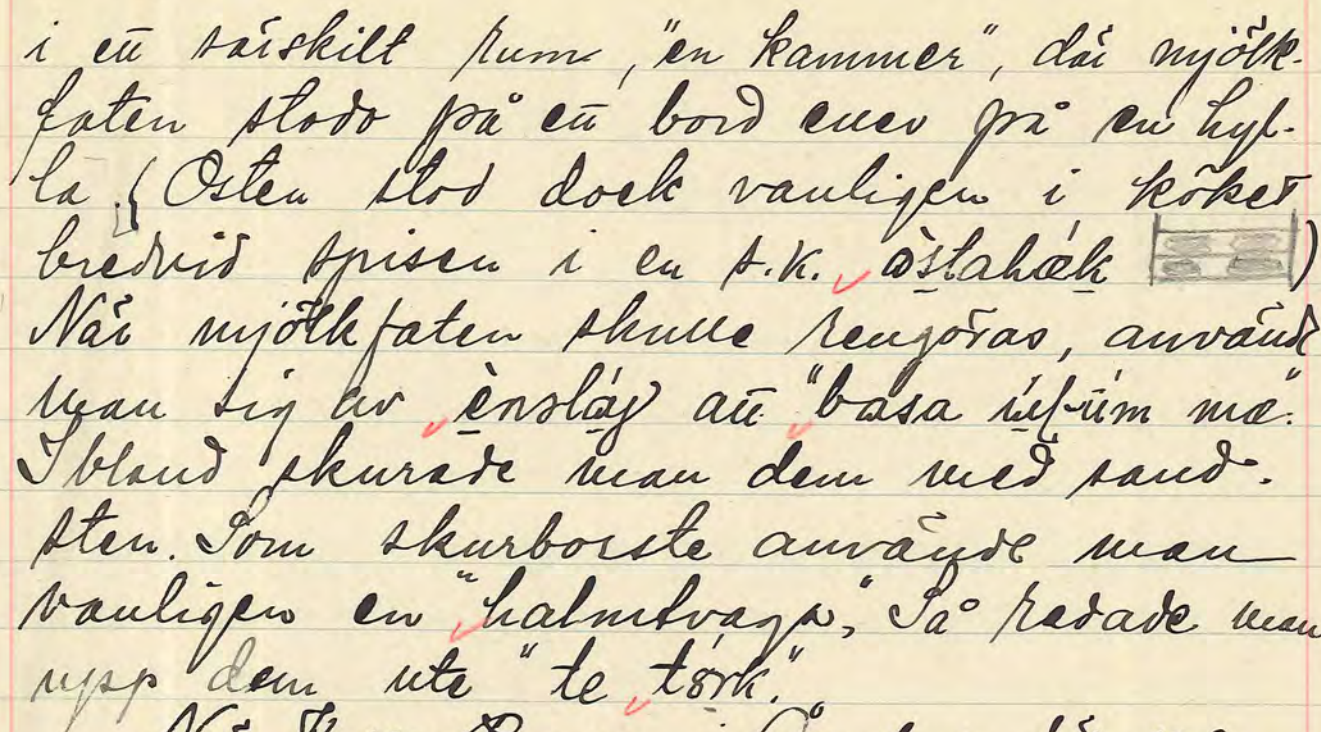 i ett särskilt rum, "en kammer", där mjölk-
faten stodo på ett bord eller på en hyl-
la. (Osten stod dock vanligen i köket
bredvid spisen i en s.k. òstahǽk )
När mjölkfaten skulle rengöras, använde
man sig av ènslág att "basa
Ibland skurade man dem med sand-
sten. Som skurborste använde man
vanligen en "halmtvaga". Så radade man
upp dem ute "te tørk."